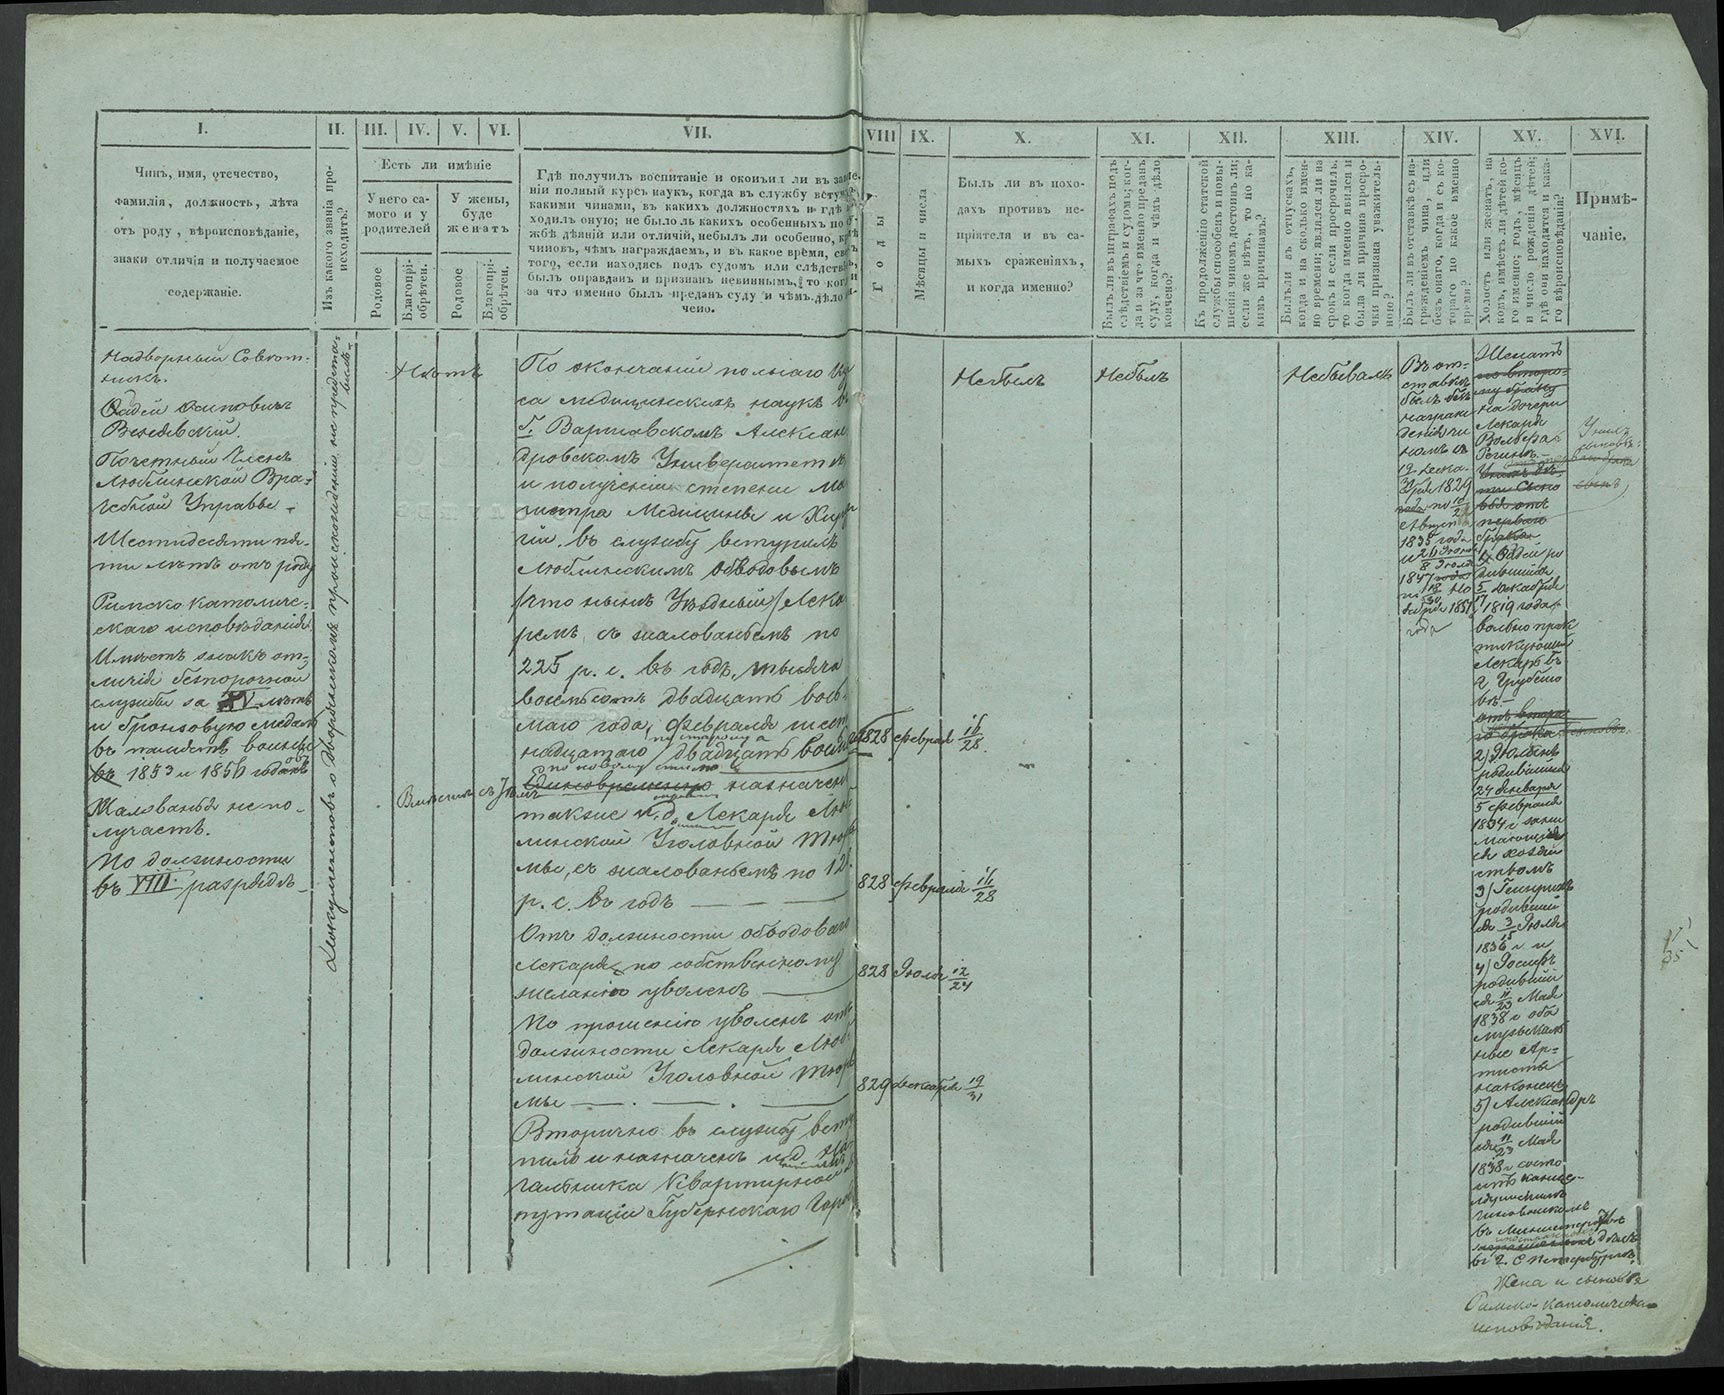 I.
II.
III.
IV.
V.
VI.
VII.
VIII
IX.
X.
XI.
XII.
XIII.
XIV.
XV.
XVI.
Чинъ, имя, отечество,
фамилія, должность, лѣта
отъ роду, вѣроисповѣданіе,
знаки отличія и получаемое
содержаніе.
Изъ какого званія про-
исходитъ?
Есть ли имѣніе
У него са-
мого и у
родителей
У жены,
буде
женатъ
Родовое
Благопрі-
обрѣтен.
Родовое
Благопрі-
обрѣтен.
Гдѣ получилъ воспитаніе и окончил ли въ заве
ніи полный курсъ наукъ, когда въ службу вступ
какими чинами, въ какихъ должностяхъ и гдѣ
ходилъ оную; не было ль какихъ особенныхъ по
жбѣ дѣяній или отличій, небылъ ли особенно, кр
чиновъ, чѣмъ награждаемъ, и въ какое время, св
того, если находясь подъ судомъ или слѣдств
былъ оправданъ и признанъ невиннымъ, то ког
за что именно былъ преданъ суду и чѣмъ дѣло
чено.
Годы
Мѣсяцы и числа
Былъ ли въ похо-
дахъ противъ не-
пріятеля и въ са-
мыхъ сраженіяхъ,
и когда именно?
Былъ ли въ штрафахъ подъ
слѣдствіемъ и судомъ; ког-
да и за что именно преданъ
суду, когда и чѣмъ дѣло
кончено?
Къ продолженію статской
службы способенъ и повы-
шенія чиномъ достоинъ ли;
если же нѣтъ, то по ка-
кимъ причинамъ?
Былъ ли въ отпускахъ,
когда и на сколько имен-
но времени; явился ли на
срокъ и если просрочилъ,
то когда именно явился и
была ли причина просро-
чки признана уважитель-
ною?
Былъ ли въ отставкѣ съ на-
гражденіемъ чина, или
безъ онаго, когда и съ ко-
тораго по какое именно
время?
Холостъ или женатъ, на
комъ, имѣетъ ли дѣтей ко-
го именно; годъ, мѣсяцъ
и число рожденія дѣтей;
гдѣ они находятся и кака-
го вѣроисповѣданія?
Примѣ-
чаніе.
Надворный Совѣт-
никъ.
Фадей Осиповичъ
Венявскій.
Почетный Членъ
Люблинской Вра-
чебной Управы.
Шестидесяти пя-
ти лѣтъ отъ роду
Римско католиче-
скаго исповѣданія
Имѣетъ знакъ от-
личія безпорочной
службы за XV лѣтъ
и бронзовую медаль
въ память войны
въ 1853 и 1856 годахъ
Жалованья не по-
лучаетъ.
По должности
въ VIII разрядѣ
Документовъ о дворянскомъ происхожденіи не предста-
вилъ
Нѣтъ
По окончаніи полнаго кур
са медицинскихъ наукъ въ
Г. Варшавскомъ Алексан
дровскомъ Университетѣ
и полученіи степени Ма
гистра Медицины и Хирур
гіи въ службу вступилъ
Люблинскимъ Обводовымъ
/что нынѣ Уѣздный/ Лека
ремъ съ жалованьемъ по
225 р. с. въ годъ, тысяча
восемьсотъ двадцать вось-
маго года, Февраля шест
надцатаго по старому а двадцать восьма
по новому стилю
Единовременно назначенъ
также и.д. Лекаря Люб
линской Уголовной Тюрь
мы, съ жалованьемъ по 12
р. с. въ годъ
Отъ должности обводоваго
Лекаря, по собственному
желанію уволенъ
По прошенію уволенъ отъ
должности Лекаря Люб
линской Уголовной Тюрь
мы
Вторично въ службу всту
пилъ и назначенъ и.д. На
чальника Квартирной
путаціи Губернскаго Горо
1828 Февраля 16/28.
828 Февраля 16/28
828 Іюля 12/24
829 Декабря 19/31
Небылъ
Небылъ
Небывалъ
Въ от-
ставкѣ
былъ безъ
награж
денія чи
номъ съ
19 Дека-
31 бря 1829
года по
Август
1835 года
1847 года
ября 1851
года
Женатъ
по второ-
му браку
на дочери
Лекаря
Вольфа
Регинѣ.
перваго
брака
1. Фадей ро
дившійся
5/17 Декабря
1819 года
вольно прак
тикующій
Лекарь въ
г. Грубешо
вѣ
2) Юліанъ
родившійся
24 Января
5 Февраля
1834 г. зани
мающійся
хозяй
ствомъ
3) Генрихъ
родившій
ся 3/15 Іюля
1836 г. и
4) Іосифъ
родившій
ся 11/23 Мая
1838 г. оба
музыкаль
ные Ар-
тисты
наконецъ
5) Александръ
родившій
ся 11/23 Мая
1838 г. состо
итъ канце-
лярскимъ
чиновникомъ
въ Министерствѣ
дѣлъ
въ г. С Петербургѣ.
Жена и сыновья
Римско-католическаго
исповѣданія.